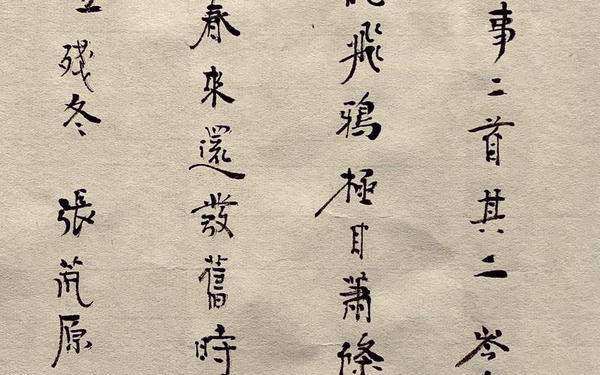 事二首其二岑
飛鴉極目蕭條
春來還發舊時
殘冬 張筑原